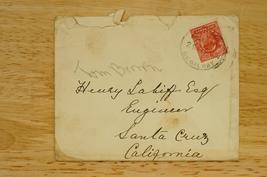 Tom Brown
Henry Labiff Esq
Engineer
Santa Cruz
California